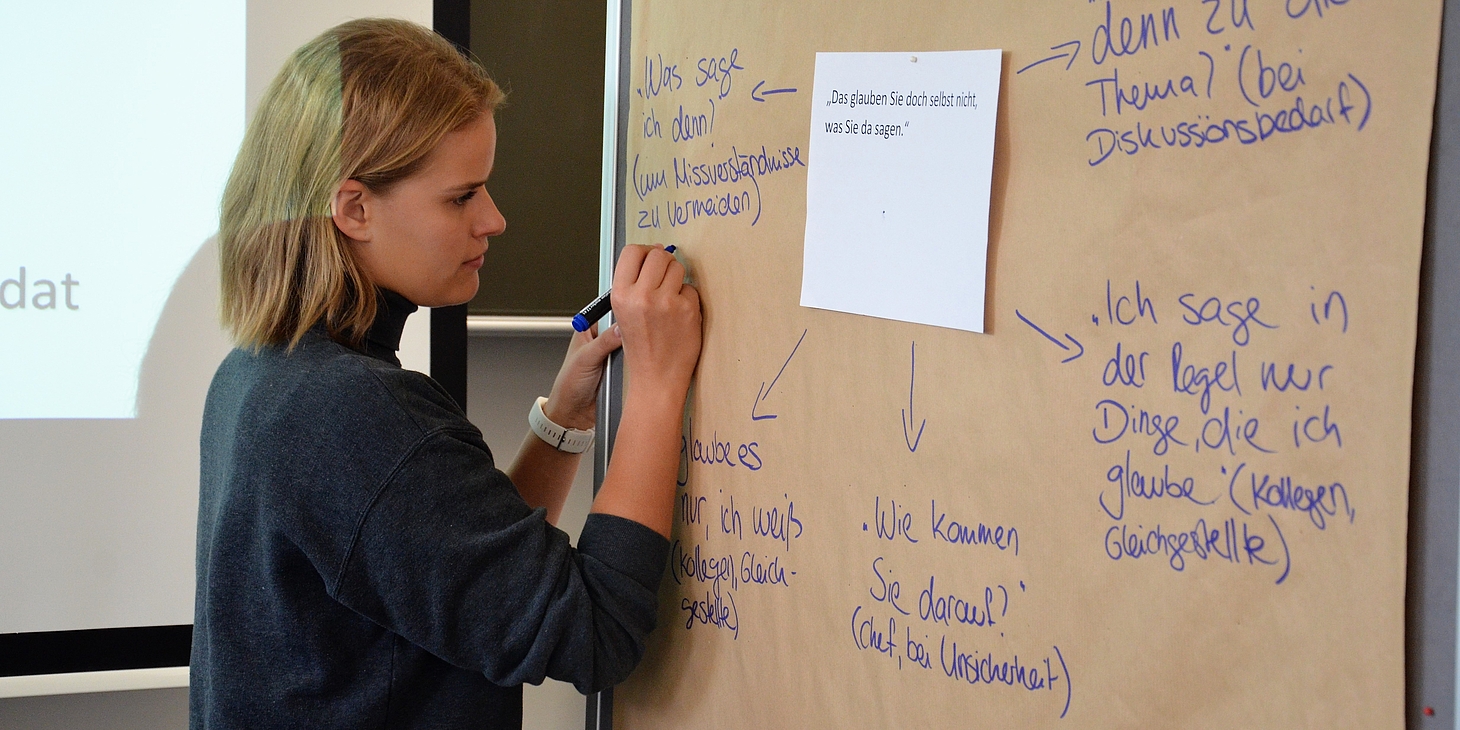 dat
„Was sage
ich denn?"
(um Missverständnisse
zu vermeiden)
„Das glauben Sie doch selbst nicht,
was Sie da sagen."
denn zu die
Thema?" (bei
Diskussionsbedarf)
glaube es
nur, ich weiß
(Kollegen, Gleich-
gestellte)
„Wie kommen
Sie darauf?"
(Chef, bei Unsicherheit)
„Ich sage in
der Regel nur
Dinge, die ich
glaube" (Kollegen,
Gleichgestellte)